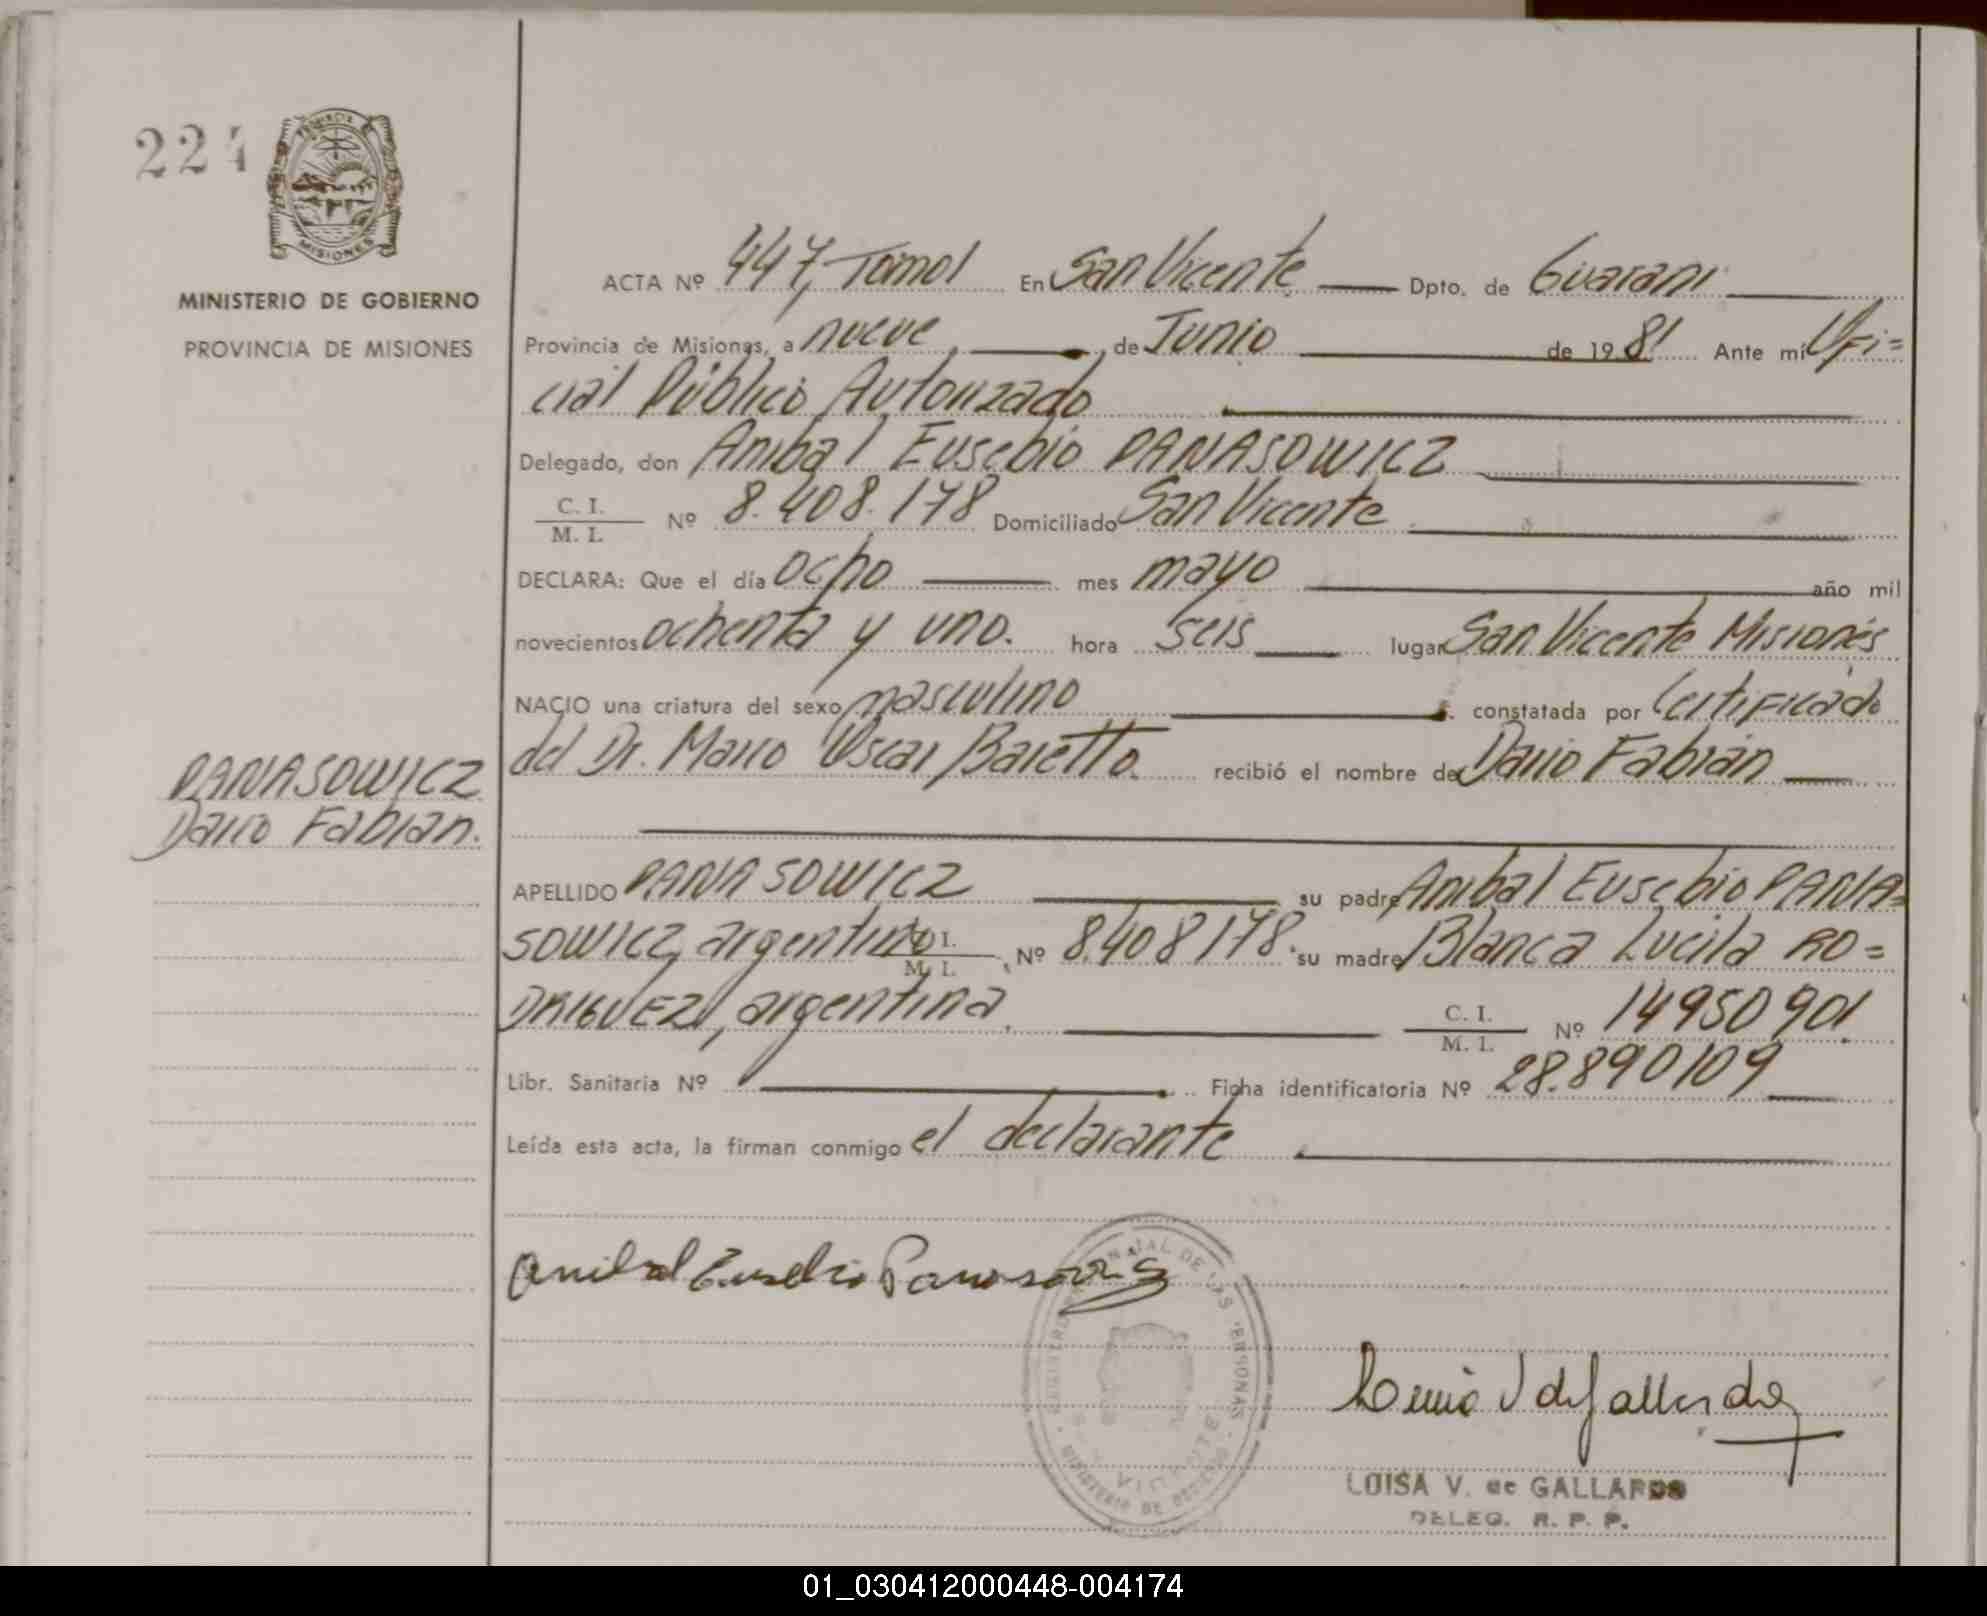 224
PROVINCIA
MISIONES
MINISTERIO DE GOBIERNO
PROVINCIA DE MISIONES
ACTA Nº 447, Tomo I En San Vicente Dpto. de Guarani
Provincia de Misiones, a nueve de Junio de 1981 Ante mí Ofi=
cial Público Autorizado
Delegado, don Anibal Eusebio PANASOWICZ
C. I.
M. I. Nº 8.408.178 Domiciliado San Vicente
DECLARA: Que el día ocho mes mayo año mil
novecientos ochenta y uno. hora seis lugar San Vicente Misiones
NACIO una criatura del sexo masculino constatada por Certificado
del Dr. Mario Oscar Baretto. recibió el nombre de Dario Fabián
PANASOWICZ
Dario Fabian.
APELLIDO PANASOWICZ su padre Anibal Eusebio PANA=
SOWICZ, argentino C. I. M. I. Nº 8.408178. su madre Blanca Lucila RO=
DRIGUEZ, argentina. C. I. M. I. Nº 14950901
Libr. Sanitaria Nº Ficha identificatoria Nº 28.890109
Leída esta acta, la firman conmigo el declarante
Anibal Eusebio Panasowicz
REGISTRO PROVINCIAL DE LAS PERSONAS
SAN VICENTE
MINISTERIO DE GOBIERNO
Luisa V de Gallardo
LUISA V. de GALLARDO
DELEG. R. P. P.
01_030412000448-004174